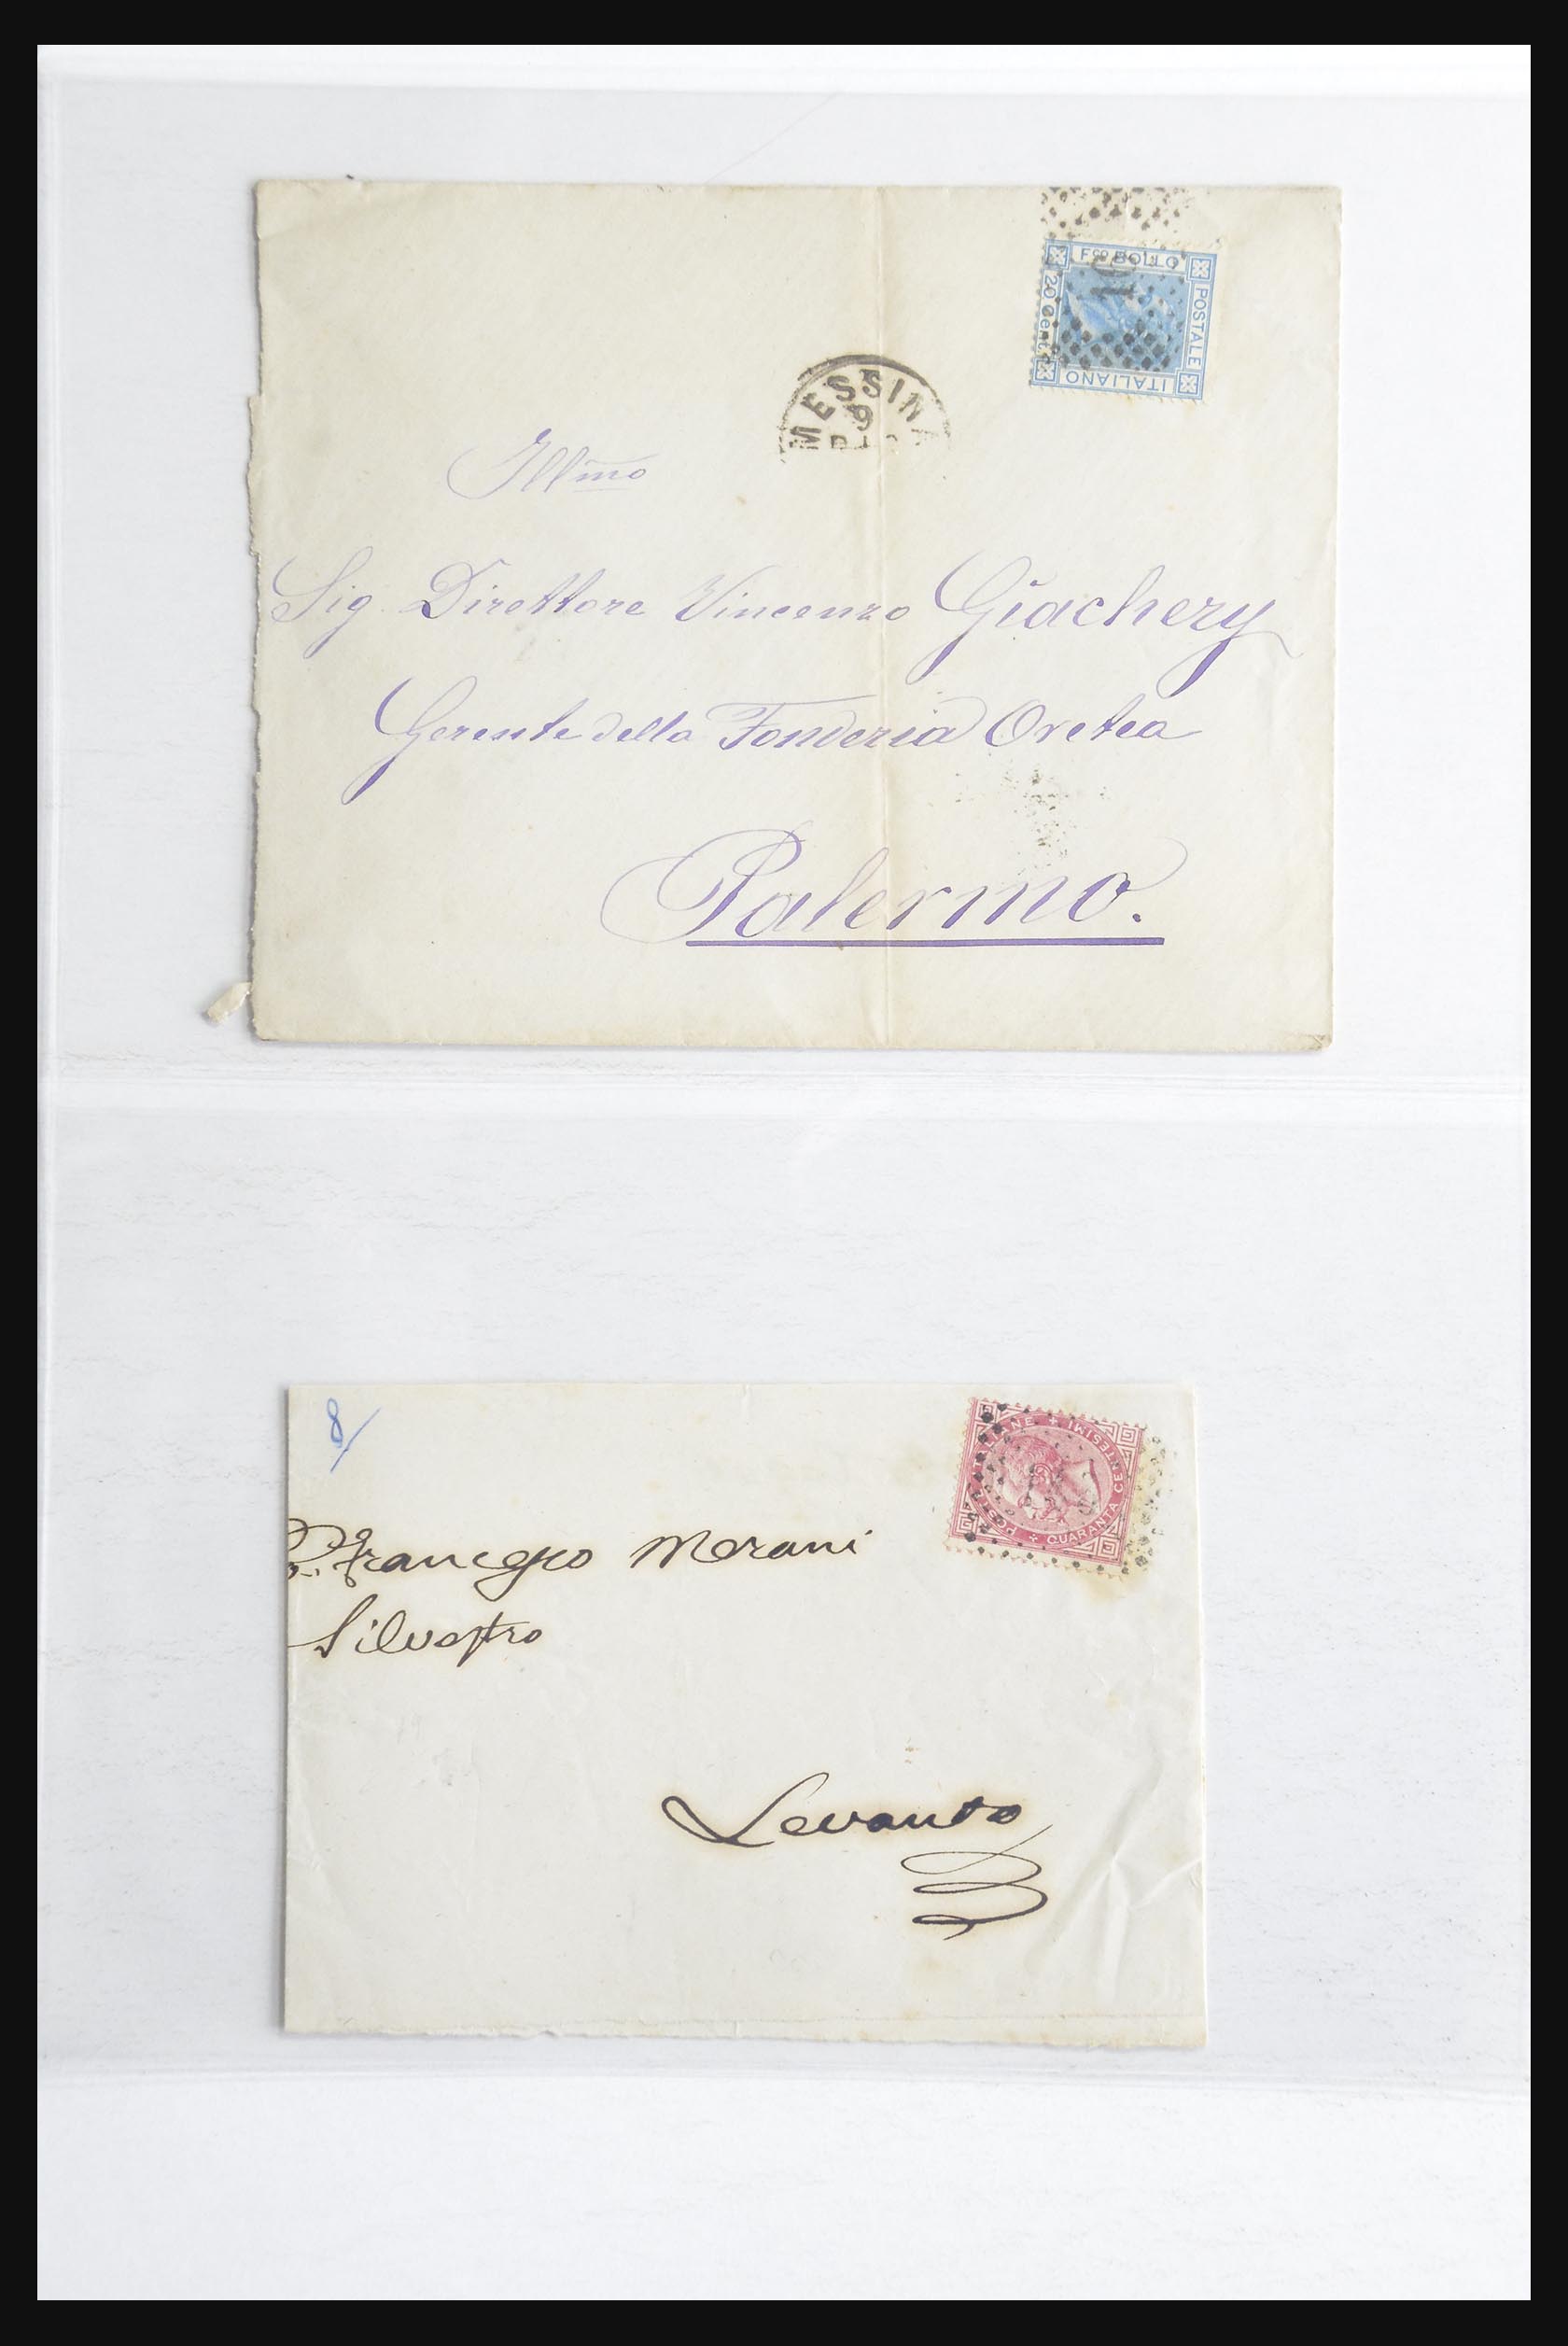 Fco BOLLO
POSTALE
ITALIANO
20 Cent.
MESSINA
9
Illmo
Sig. Direttore Vincenzo Giachery
Gerente della Fonderia Oretea
Palermo.
8/
CUARANTA CENTESIMI
Francesco Merani
Silvestro
Levanto